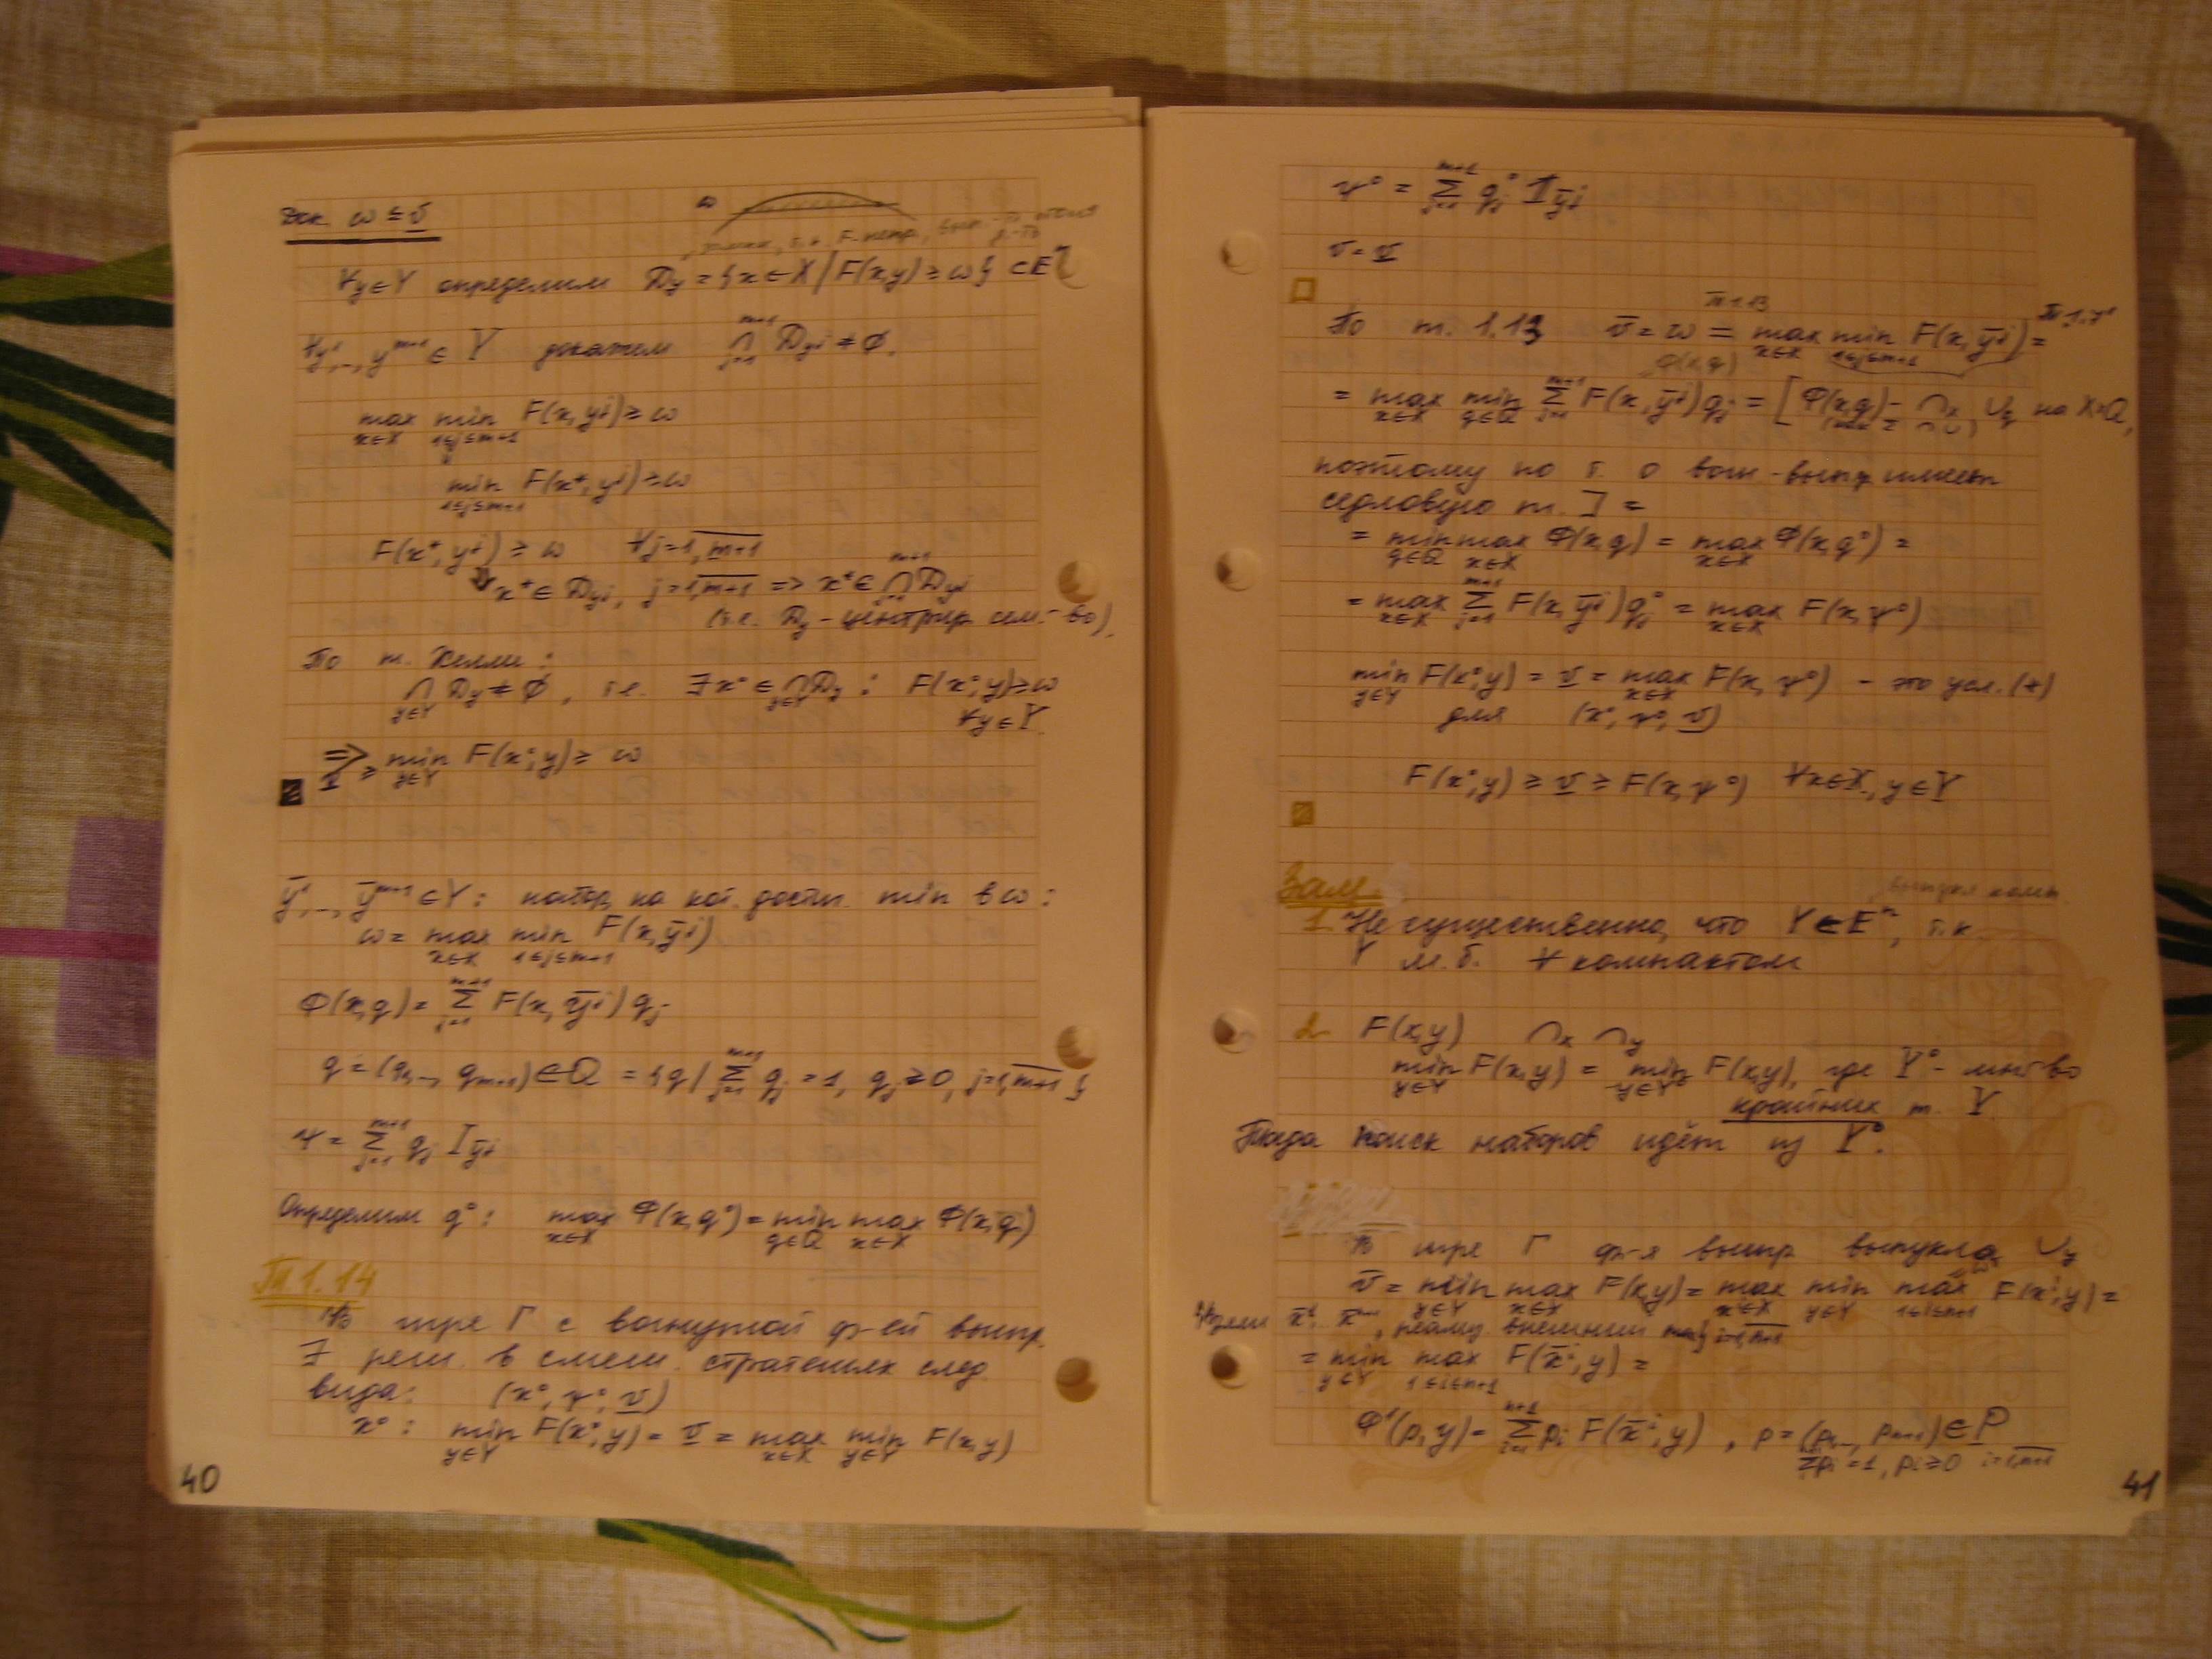 Док. ω ≤ v̲
ω
замкн., т.к. F-непр., вып.
∀y∈Y определим D_y = {x∈X | F(x,y) ≥ ω} ⊂ E^m
∀y¹,…,y^{m+1} ∈ Y докажем ∩_{j=1}^{m+1} D_{y^j} ≠ ∅.
max_{x∈X} min_{1≤j≤m+1} F(x,y^j) ≥ ω
min_{1≤j≤m+1} F(x*,y^j) ≥ ω
F(x*,y^j) ≥ ω ∀j=1,m+1
x* ∈ D_{y^j}, j=1,m+1 => x* ∈ ∩ D_{y^j}
(т.е. D_y - центрир. сем-во).
По т. Хелли:
∩_{y∈Y} D_y ≠ ∅, т.е. ∃x⁰ ∈ ∩_{y∈Y} D_y : F(x⁰,y) ≥ ω
∀y∈Y.
=> v̲ ≥ min_{y∈Y} F(x⁰,y) ≥ ω
ȳ¹,…,ȳ^{m+1} ∈ Y: набор, на кот. достиг. min в ω:
ω = max_{x∈X} min_{1≤j≤m+1} F(x,ȳ^j)
Φ(x,q) = Σ_{j=1}^{m+1} F(x,ȳ^j) q_j
q = (q_1,…,q_{m+1}) ∈ Q = {q | Σ_{j=1}^{m+1} q_j = 1, q_j ≥ 0, j=1,m+1}
Ψ = Σ_{j=1}^{m+1} q_j I_{ȳ^j}
Определим q⁰: max_{x∈X} Φ(x,q⁰) = min_{q∈Q} max_{x∈X} Φ(x,q)
Т 1.14
В игре Г с вогнутой ф-ей выигр.
∃ реш. в смеш. стратегиях след.
вида: (x⁰, ψ⁰, v̲)
x⁰: min_{y∈Y} F(x⁰,y) = v̲ = max_{x∈X} min_{y∈Y} F(x,y)
40
ψ⁰ = Σ_{j=1}^{m+1} q_j⁰ I_{ȳ^j}
v = v̲
Т 1.13
По т. 1.13 v̲ = ω = max_{x∈X} min_{1≤j≤m+1} F(x,ȳ^j) =
Φ(x,q)
= max_{x∈X} min_{q∈Q} Σ_{j=1}^{m+1} F(x,ȳ^j) q_j = [Φ(x,q) - ∩_x ∪_q на X×Q,
поэтому по т. о вогн-вып имеет
седловую т.] =
= min_{q∈Q} max_{x∈X} Φ(x,q) = max_{x∈X} Φ(x,q⁰) =
= max_{x∈X} Σ_{j=1}^{m+1} F(x,ȳ^j) q_j⁰ = max_{x∈X} F(x,ψ⁰)
min_{y∈Y} F(x⁰,y) = v̲ = max_{x∈X} F(x,ψ⁰) - это усл. (*)
для (x⁰, ψ⁰, v̲)
F(x⁰,y) ≥ v̲ ≥ F(x,ψ⁰) ∀x∈X, y∈Y
Зам. выпукл комп.
1. Не существенно, что Y∈E^n, т.к.
Y м.б. ∀ компактом
2. F(x,y) ∩_x ∩_y
min_{y∈Y} F(x,y) = min_{y∈Y⁰} F(x,y), где Y⁰ - мн-во
крайних т. Y
Тогда поиск наборов идёт из Y⁰.
В игре Г ф-я выигр выпукла ∪_y
v̄ = min_{y∈Y} max_{x∈X} F(x,y) = max_{x^i∈X} min_{y∈Y} max_{1≤i≤n+1} F(x^i,y) =
x̄¹,… x̄^{n+1}, реализ. внешний max} i=1,n+1
= min_{y∈Y} max_{1≤i≤n+1} F(x̄^i,y) =
Φ¹(p,y) = Σ_{i=1}^{n+1} p_i F(x̄^i,y), p = (p_1,…,p_{n+1}) ∈ P
Σp_i = 1, p_i ≥ 0 i=1,n+1
41